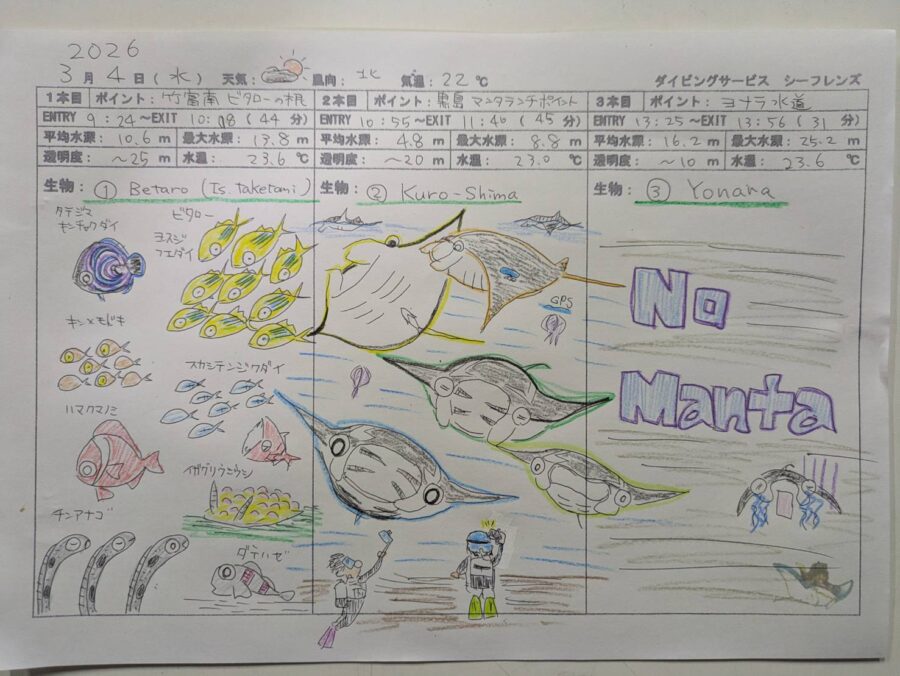 2026
3月4日(水) 天気: 風向: 北 気温: 22℃ ダイビングサービス シーフレンズ
1本目 ポイント: 竹富南 ビタローの根
ENTRY 9:24~EXIT 10:08 (44分)
平均水深: 10.6 m 最大水深: 13.8 m
透明度: ~25 m 水温: 23.6 ℃
生物: ① Betaro (Is. taketomi)
タテジマ
キンチャクダイ
ビタロー
ヨスジ
フエダイ
キンメモドキ
スカシテンジクダイ
ハマクマノミ
イガグリウミウシ
チンアナゴ
ダテハゼ
2本目 ポイント: 黒島 マンタランチポイント
ENTRY 10:55~EXIT 11:40 (45分)
平均水深: 4.8 m 最大水深: 8.8 m
透明度: ~20 m 水温: 23.0 ℃
生物: ② Kuro-Shima
GPS
3本目 ポイント: ヨナラ水道
ENTRY 13:25~EXIT 13:56 (31分)
平均水深: 16.2 m 最大水深: 25.2 m
透明度: ~10 m 水温: 23.6 ℃
生物: ③ Yonara
No
Manta